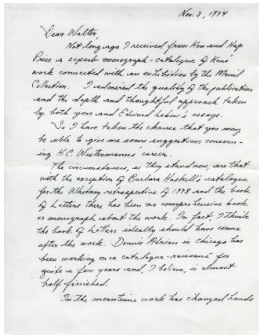 Nov. 3, 1994
Dear Walter,
Not long ago I received from Ken and Hap
Price a superb monograph - catalogue of Kens'
work connected with an exhibition by the Menil
Collection. I admired the quality of the publication
and the depth and thoughtful approach taken
by both your and Edward Lebow's essays.
So I have taken the chance that you may
be able to give me some suggestions concern-
ing H.C. Westermanns career.
The circumstances, as they stand now, are that
with the exception of Barbara Haskell's catalogue
for the Whitney retrospective of 1978 and the book
of Letters there has been no comprehensive book
or monograph about the work. In fact, I think
the book of Letters ideally should have come
after the work. Dennis Adrian in Chicago has
been working on a catalogue - raisonné for
quite a few years and, I believe, is almost
half finished.
In the meantime work has changed hands